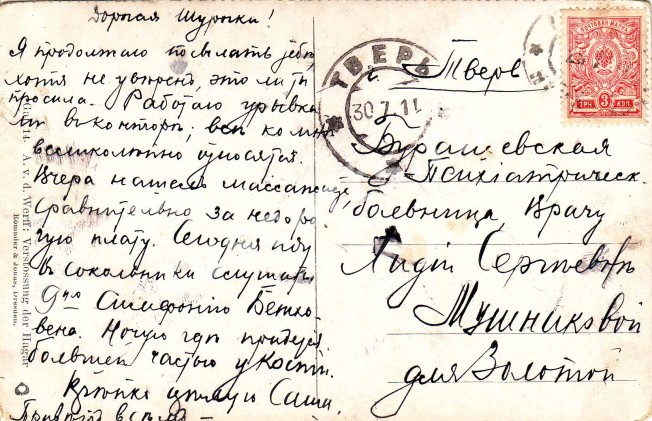 Дорогая Шурочка!
Я продолжаю посылать тебе,
хотя не уверен, это ли ты
просила. Работаю урывка
ми в конторе; все ко мне
великолепно относятся.
Вчера нашел массаж
сравнительно за недоро
гую плату. Сегодня иду
в Сокольники слушать
9ую Симфонию Бетхо
вена. Ночую где придется
большей частью у Кости.
Крепко целую Саша.
Привет всем
A. v. d. Werff: Verstossung der Hagar
Rommler & Jonas, Dresden.
ТВЕРЬ
30 7 11
г. Тверь
Бурашевская
Психіатрическ.
больница Врачу
Лидіи Сергѣевнѣ
Мушниковой
для Золотой
ПОЧТОВАЯ МАРКА
3
ТРИ КОП.